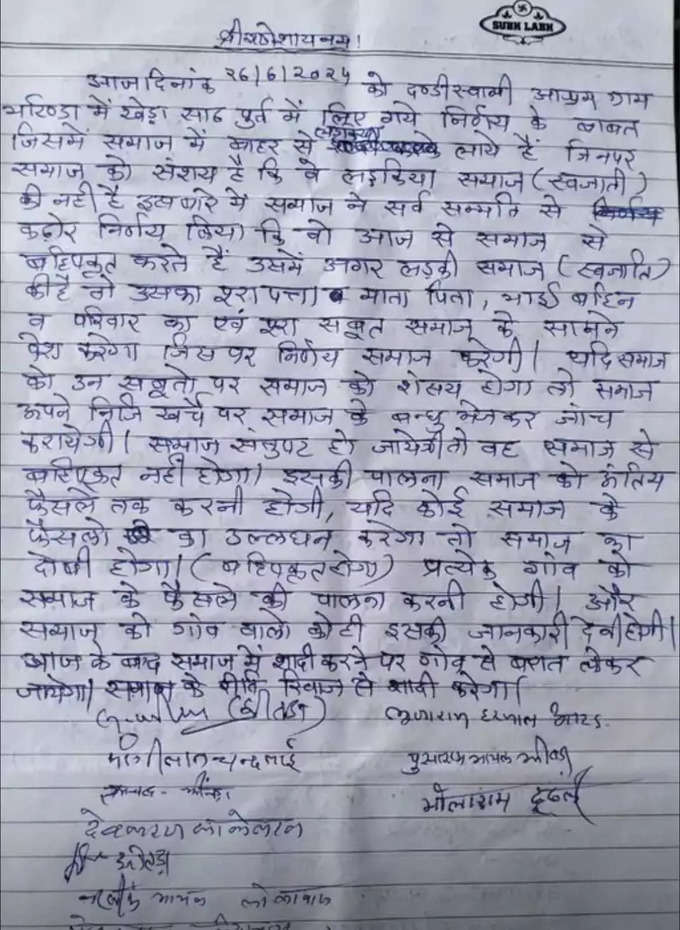 SUBH LABH
श्री गणेशाय नमः।
आज दिनांक 26/6/2024 को दण्डी स्वामी आश्रम ग्राम
में खेड़ा साठ पुर्व में लिए गये निर्णय के बाबत
जिसमें समाज में बाहर से लड़कियां लाये हैं जिनपर
समाज को संशय है कि वे लड़किया समाज (स्वजाती)
की नही है इस बारे में समाज ने सर्व सम्मति से
कठोर निर्णय लिया कि वो आज से समाज से
बहिष्कृत करते हैं उसमें अगर लड़की समाज (स्वजाति)
की है तो उसका पुरा पत्ता व माता पिता, भाई बहिन
व परिवार का एवं पुरा सबूत समाज के सामने
पेश करेगा जिस पर निर्णय समाज करेगी। यदि समाज
को उन सबूतो पर समाज को शंसय होगा तो समाज
अपने निजि खर्चे पर समाज के बन्धु भेजकर जांच
करायेगी। समाज संतुष्ट हो जायेगी तो वह समाज से
बहिष्कृत नही होगा। इसकी पालना समाज को अंतिम
फैसले तक करनी होगी, यदि कोई समाज के
फैसलो का उल्लघन करेगा तो समाज का
दोषी होगा। (बहिष्कृत होगा) प्रत्येक गांव को
समाज के फैसले की पालना करनी होगी। और
समाज को गांव वालो को ही इसकी जानकारी देनी होगी।
आज के बाद समाज में शादी करने पर गांव से बारात लेकर
जायेगा। समाज के रीति रिवाज से शादी करेगा।
मांगीलाल चन्दलाई
भोलाराम
देवकरण